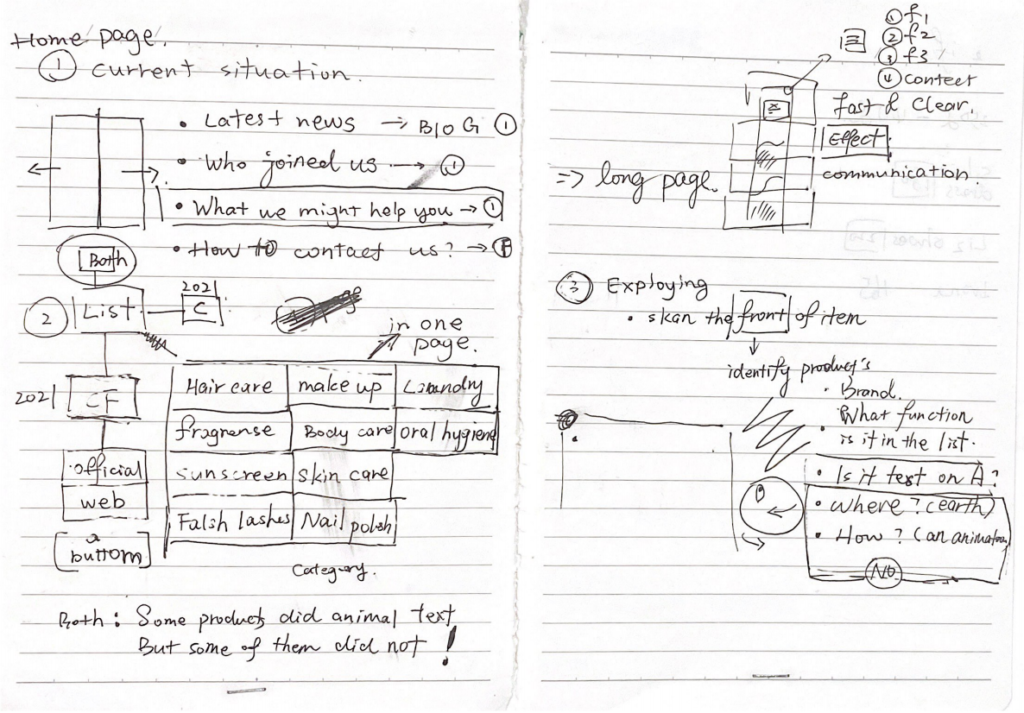 Home page.
① current situation.
• Latest news → BLOG ①
• Who joined us → ①
• What we might help you → ①
• How to contact us? → Ⓕ
Both
② List
2021
C
in one page.
2021
CF
official
web
a buttom
Hair care make up Laundry
fragrense Body care oral hygiene
sunscreen skin care
Falsh lashes Nail polish
Category.
Both: Some products did animal text
But some of them did not !
① f1
② f2
③ f3
④ contect
fast & Clear.
Effect
communication.
⇒ long page.
③ Exploying
• skan the front of item
identify product's
• Brand.
• What function
is it in the list.
• Is it text on A?
• Where? (earth)
• How? (an animation
NO